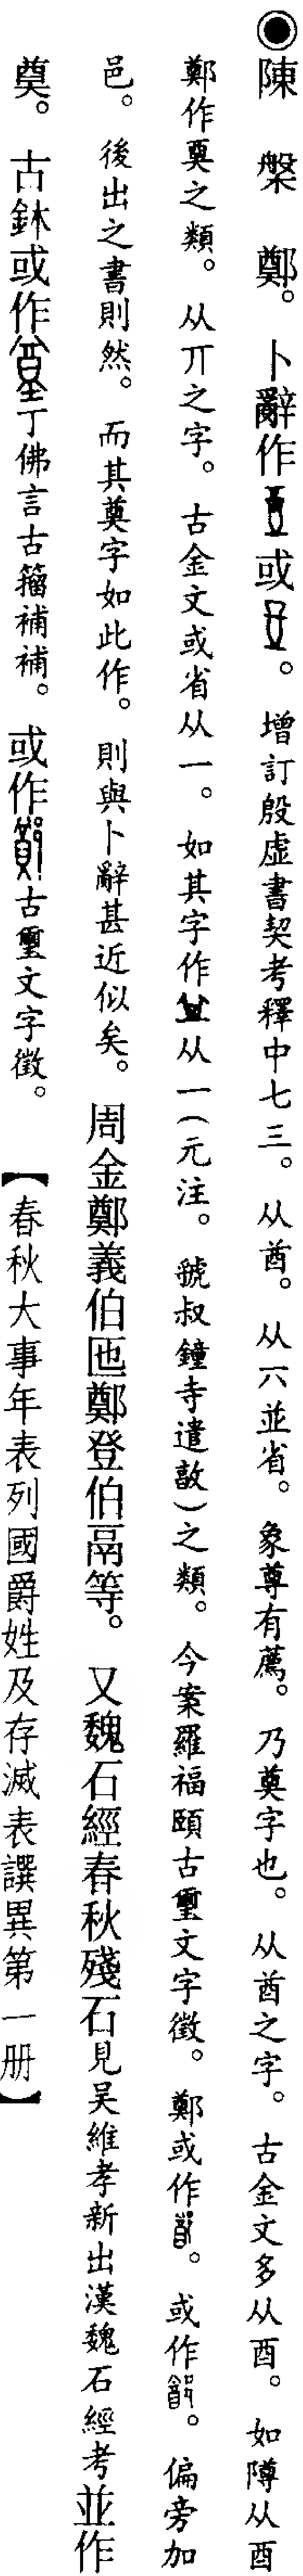 ◉陳　槃　鄭。卜辭作或。增訂殷虛書契考釋中七三。从酋。从六並省。象尊有薦。乃奠字也。从酋之字。古金文多从酉。如障从酉
鄭作奠之類。从丌之字。古金文或省从一。如其字作从一(元注。虢叔鐘寺遣敦)之類。今案羅福頤古璽文字徵。鄭或作。或作。偏旁加
邑。後出之書則然。而其奠字如此作。則與卜辭甚近似矣。周金鄭義伯匜鄭登伯鬲等。又魏石經春秋殘石見吴維孝新出漢魏石經考並作
奠。古鉥或作丁佛言古籀補補。或作古璽文字徵。【春秋大事年表列國爵姓及存滅表譔異第一册】